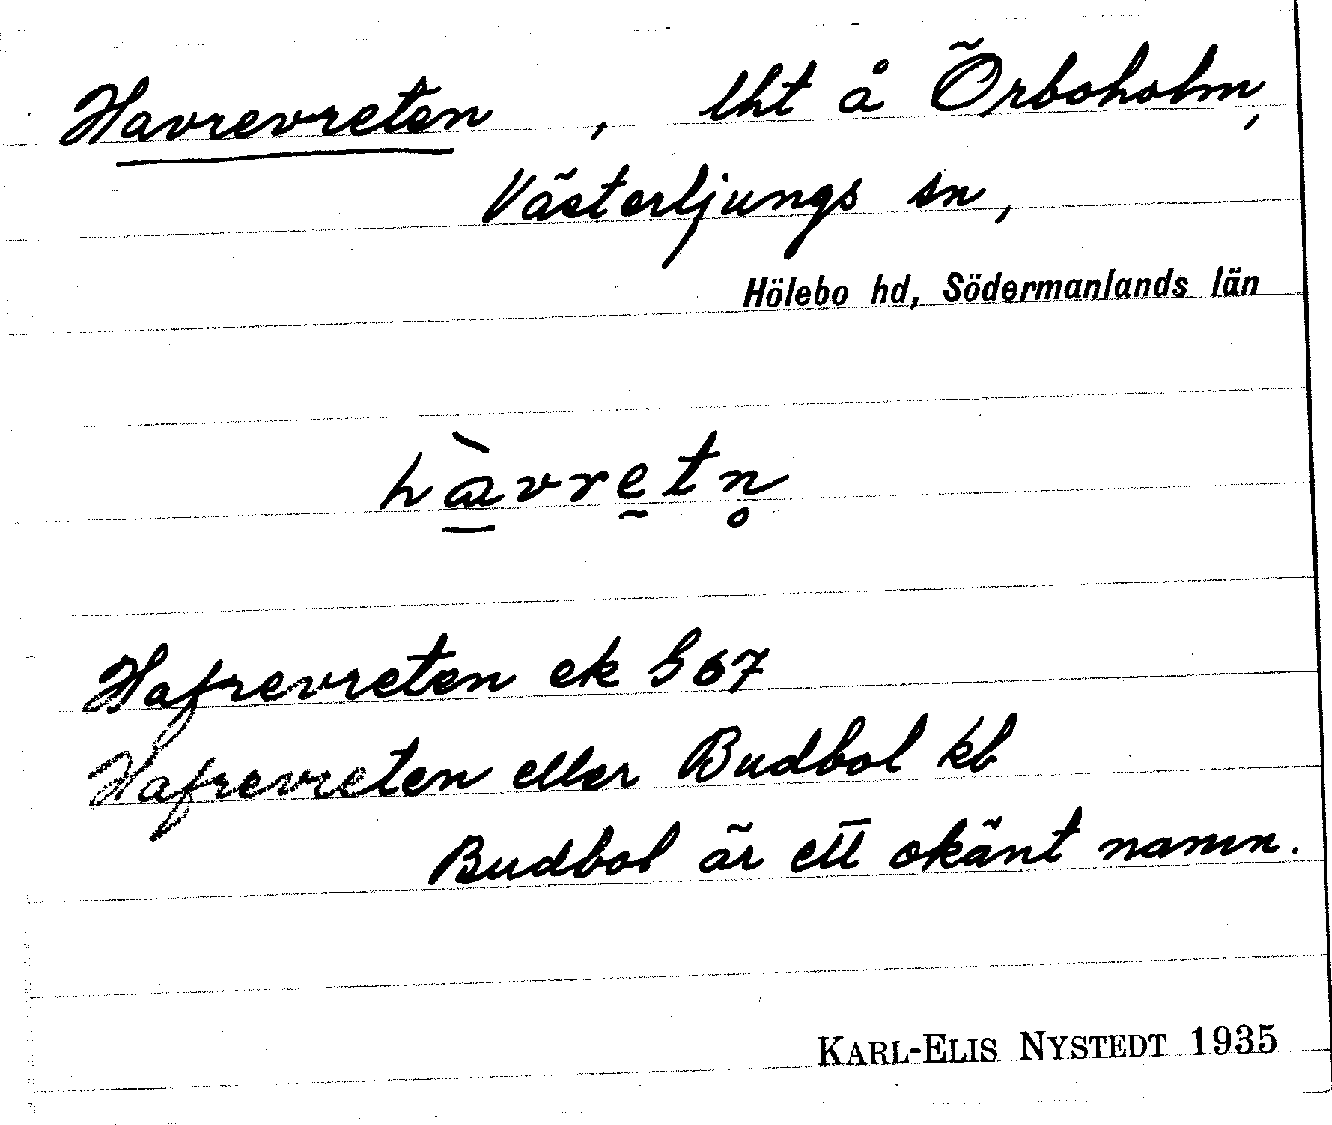 Havrevreten, lht å Örboholm,
Västerljungs sn,
Hölebo hd, Södermanlands län
hàvretn̥
Hafrevreten ek S 67
Hafrevreten eller Budbol kb
Budbol är ett okänt namn.
KARL-ELIS NYSTEDT 1935